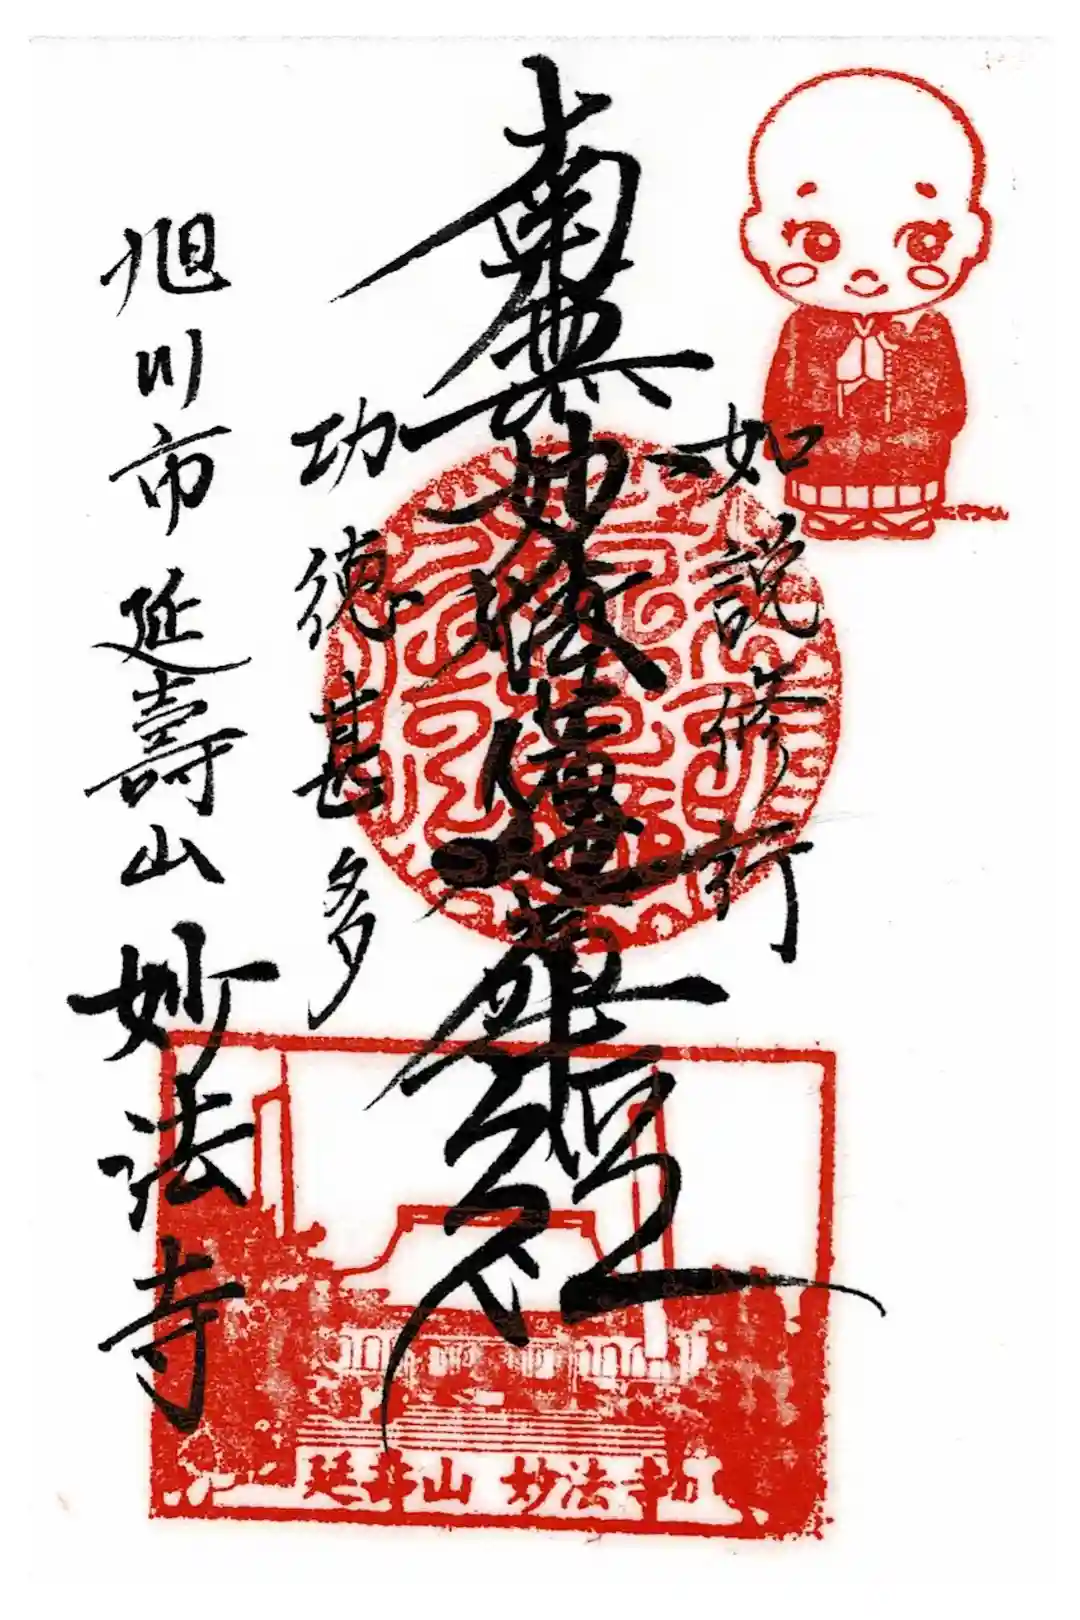 如説修行
南無妙法蓮華経
功徳甚多
旭川市 延壽山 妙法寺
延寿山 妙法寺